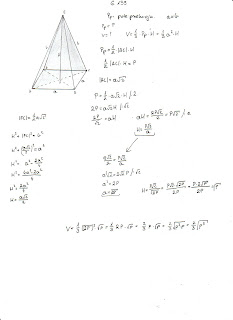 6.133
Pp: pole przekroju
Pp = P
V = ?  V = 1/3 Pp · H = 1/3 a² · H
Pp = 1/2 · |AC| · H
1/2 · |AC| · H = P
|AC| = a√2
P = 1/2 · a√2 · H / · 2
2P = a√2 H / : √2
2P/√2 = aH
aH = 2P√2/2 = P√2 / : a
H = P√2/a
|FC| = 1/2 a√2
H² + |FC|² = b²
H² + (a√2/2)² = a²
H² = a² - 2a²/4
H² = 4a² - 2a²/4
H² = 2a²/4
H = a√2/2
a√2/2 = P√2/a
a²√2 = 2√2 P / : √2
a² = 2P
a = √2P
H = P√2/√2P = P√2 · √2P/2P = P · 2√P/2P = √P
V = 1/3 (√2P)² · √P = 1/3 · 2P · √P = 2/3 P · √P = 2/3 √P²·P = 2/3 √P³